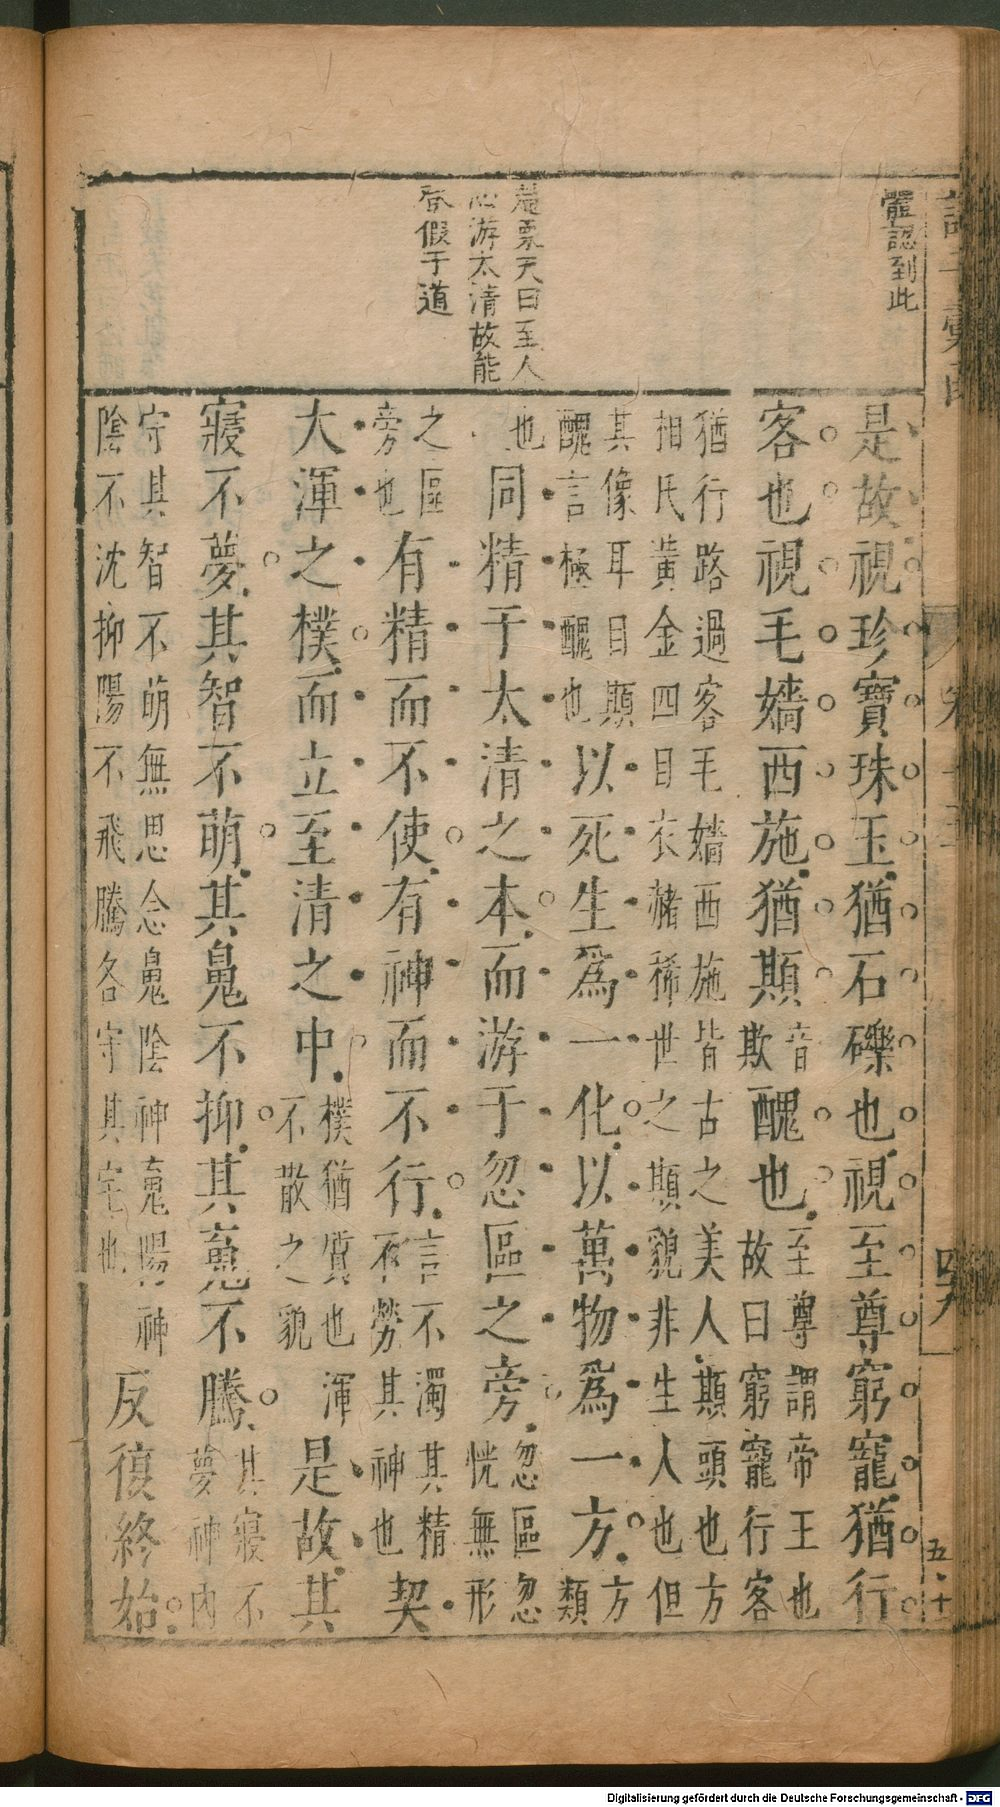 體認到此
天曰至人
心游太清故能
昏假于道
是故視珍寶珠玉猶石礫也視至尊窮寵猶行
客也視毛嬙西施猶䫏音欺醜也至尊謂帝王也故曰窮寵行客
猶行路過客毛嬙西施皆古之美人䫏頭也方
相氏黃金四目衣赭稀世之䫏貌非生人也但
其像耳目䫏
醜言極醜也
以死生為一化以萬物為一方方類
也
同精于太清之本而游于忽區之旁忽區忽恍無形
之區
旁也
有精而不使有神而不行言不濁其精不勞其神也契
大渾之樸而立至清之中樸猶質也渾不散之貌是故其
寢不夢其智不萌其䰟不抑其䰟不騰其寢不夢神內
守其智不萌無思念䰟陰神䰟陽神
陰不沈抑陽不飛騰各守其宅也
反復終始
四九
五十
Digitalisierung gefördert durch die Deutsche Forschungsgemeinschaft - DFG